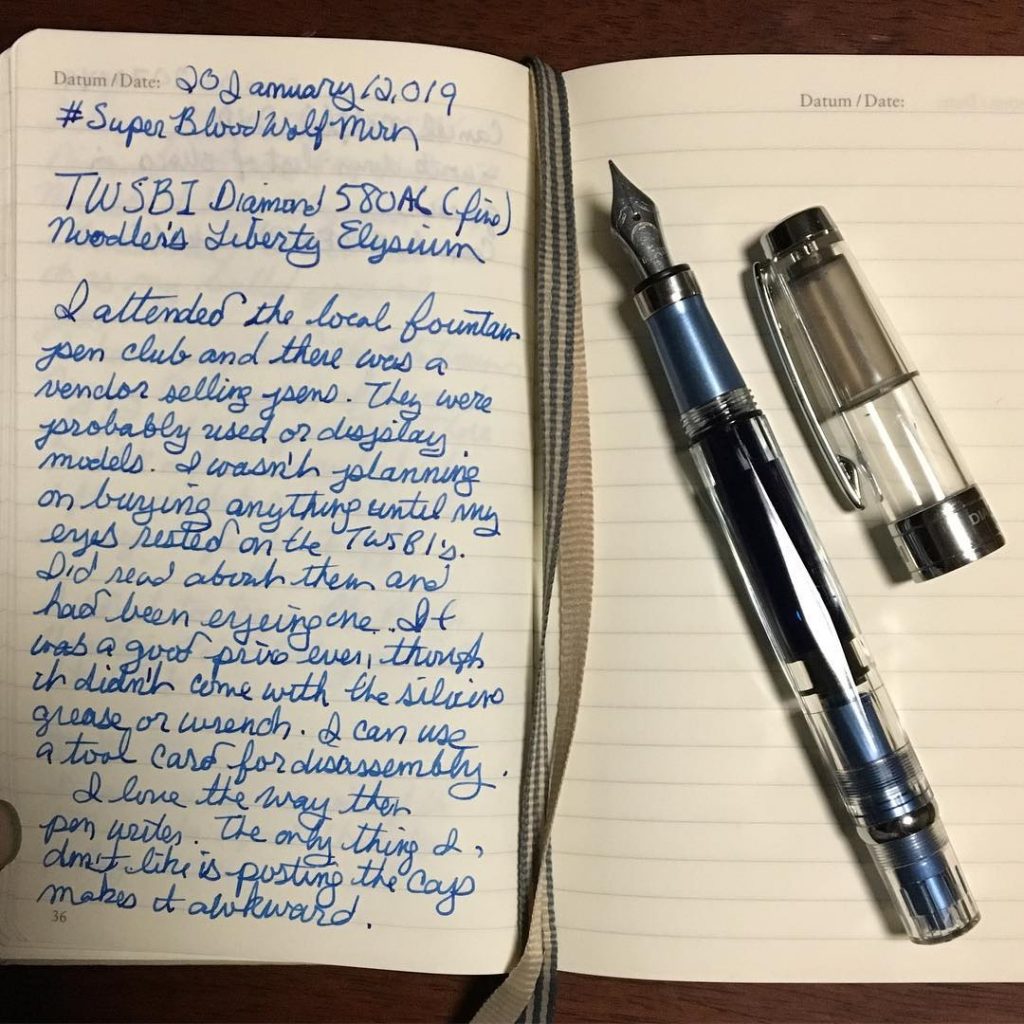 Datum / Date: 20 January / 2019
#SuperBloodWolfMoon
TWSBI Diamond 580AL (fine)
Noodler's Liberty Elysium
I attended the local fountain
pen club and there was a
vendor selling pens. They were
probably used or display
models. I wasn't planning
on buying anything until my
eyes rested on the TWSBI's.
Did read about them and
had been eyeing one. It
was a good price even, though
it didn't come with the silicone
grease or wrench. I can use
a tool card for disassembly.
I love the way this
pen writes. The only thing I
don't like is posting the cap
makes it awkward.
36
Datum / Date: